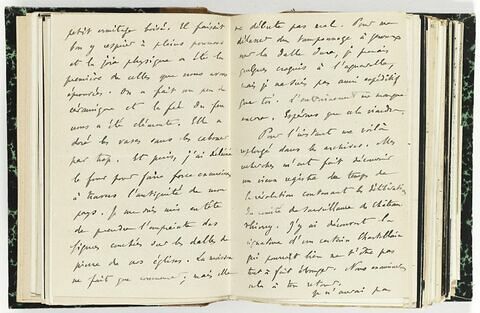 petit ermitage boisé. Il faisait
bon y respirer à pleins poumons
et la joie physique a été la
première de celles que nous avons
éprouvées. On a fait un peu de
céramique et le feu du four
nous a été clémente. Elle a
doré les vases sans les cabosser
par trop. Et puis, j'ai délaissé
le four pour faire force excursions
à travers l'antiquité de mon
pays. Je me suis mis en tête
de prendre l'empreinte des
figures couchées sur les dalles de
pierre de nos églises. La moisson
ne fait que commencer; mais elle
ne débute pas mal. Pour me
délasser du tamponnage à genoux
sur la dalle dure, j'ai pris
quelques croquis à l'aquarelle,
mais je ne suis pas aussi expéditif
que toi. L'entraînement me manque
encore. Espérons que cela viendra.
Pour l'instant me voilà
replongé dans les archives. Mes
recherches m'ont fait découvrir
un vieux registre du temps de
la révolution contenant les délibérations
du comité de surveillance de Château-
Thierry. J'y ai découvert la
signature d'un certain
qui pourrait bien ne t'être pas
tout à fait étranger. Nous examinerons
cela à ton retour.
Je n'aurai pas